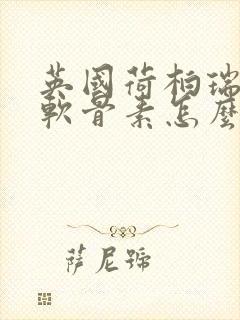 英國荷柏瑞
軟骨素怎麼
薩尼號